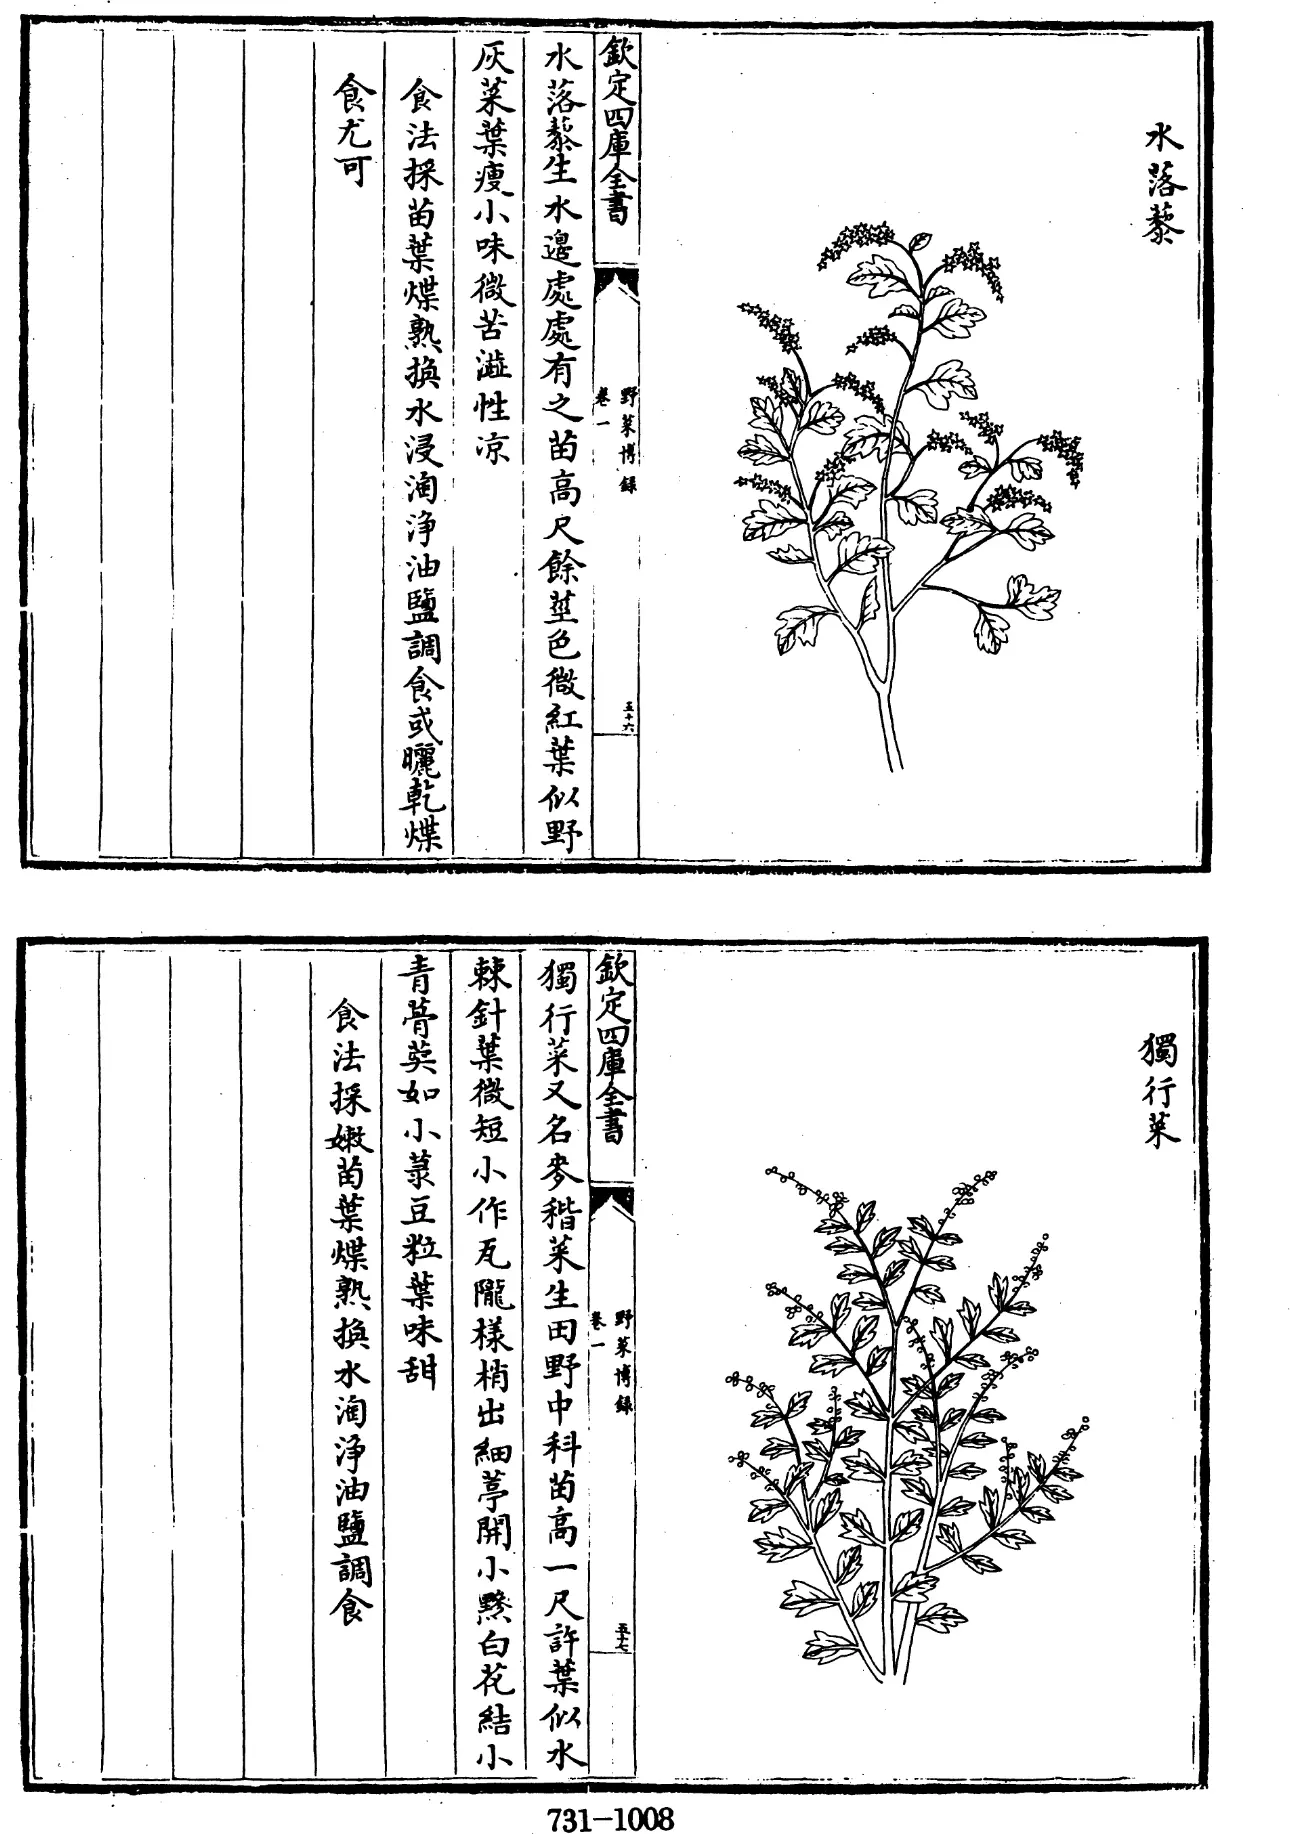 水落藜
欽定四庫全書
野菜博錄
卷一
五十六
水落藜生水邊處處有之苗高尺餘莖色微紅葉似野
灰菜葉瘦小味微苦澁性凉
食法採苗葉煠熟換水浸淘淨油鹽調食或曬乾煠
食尤可
獨行菜
欽定四庫全書
野菜博錄
卷一
五十七
獨行菜又名麥稭菜生田野中科苗高一尺許葉似水
棘針葉微短小作瓦隴樣梢出細葶開小黲白花結小
青蓇葖如小菉豆粒葉味甜
食法採嫩苗葉煠熟換水淘淨油鹽調食
731-1008